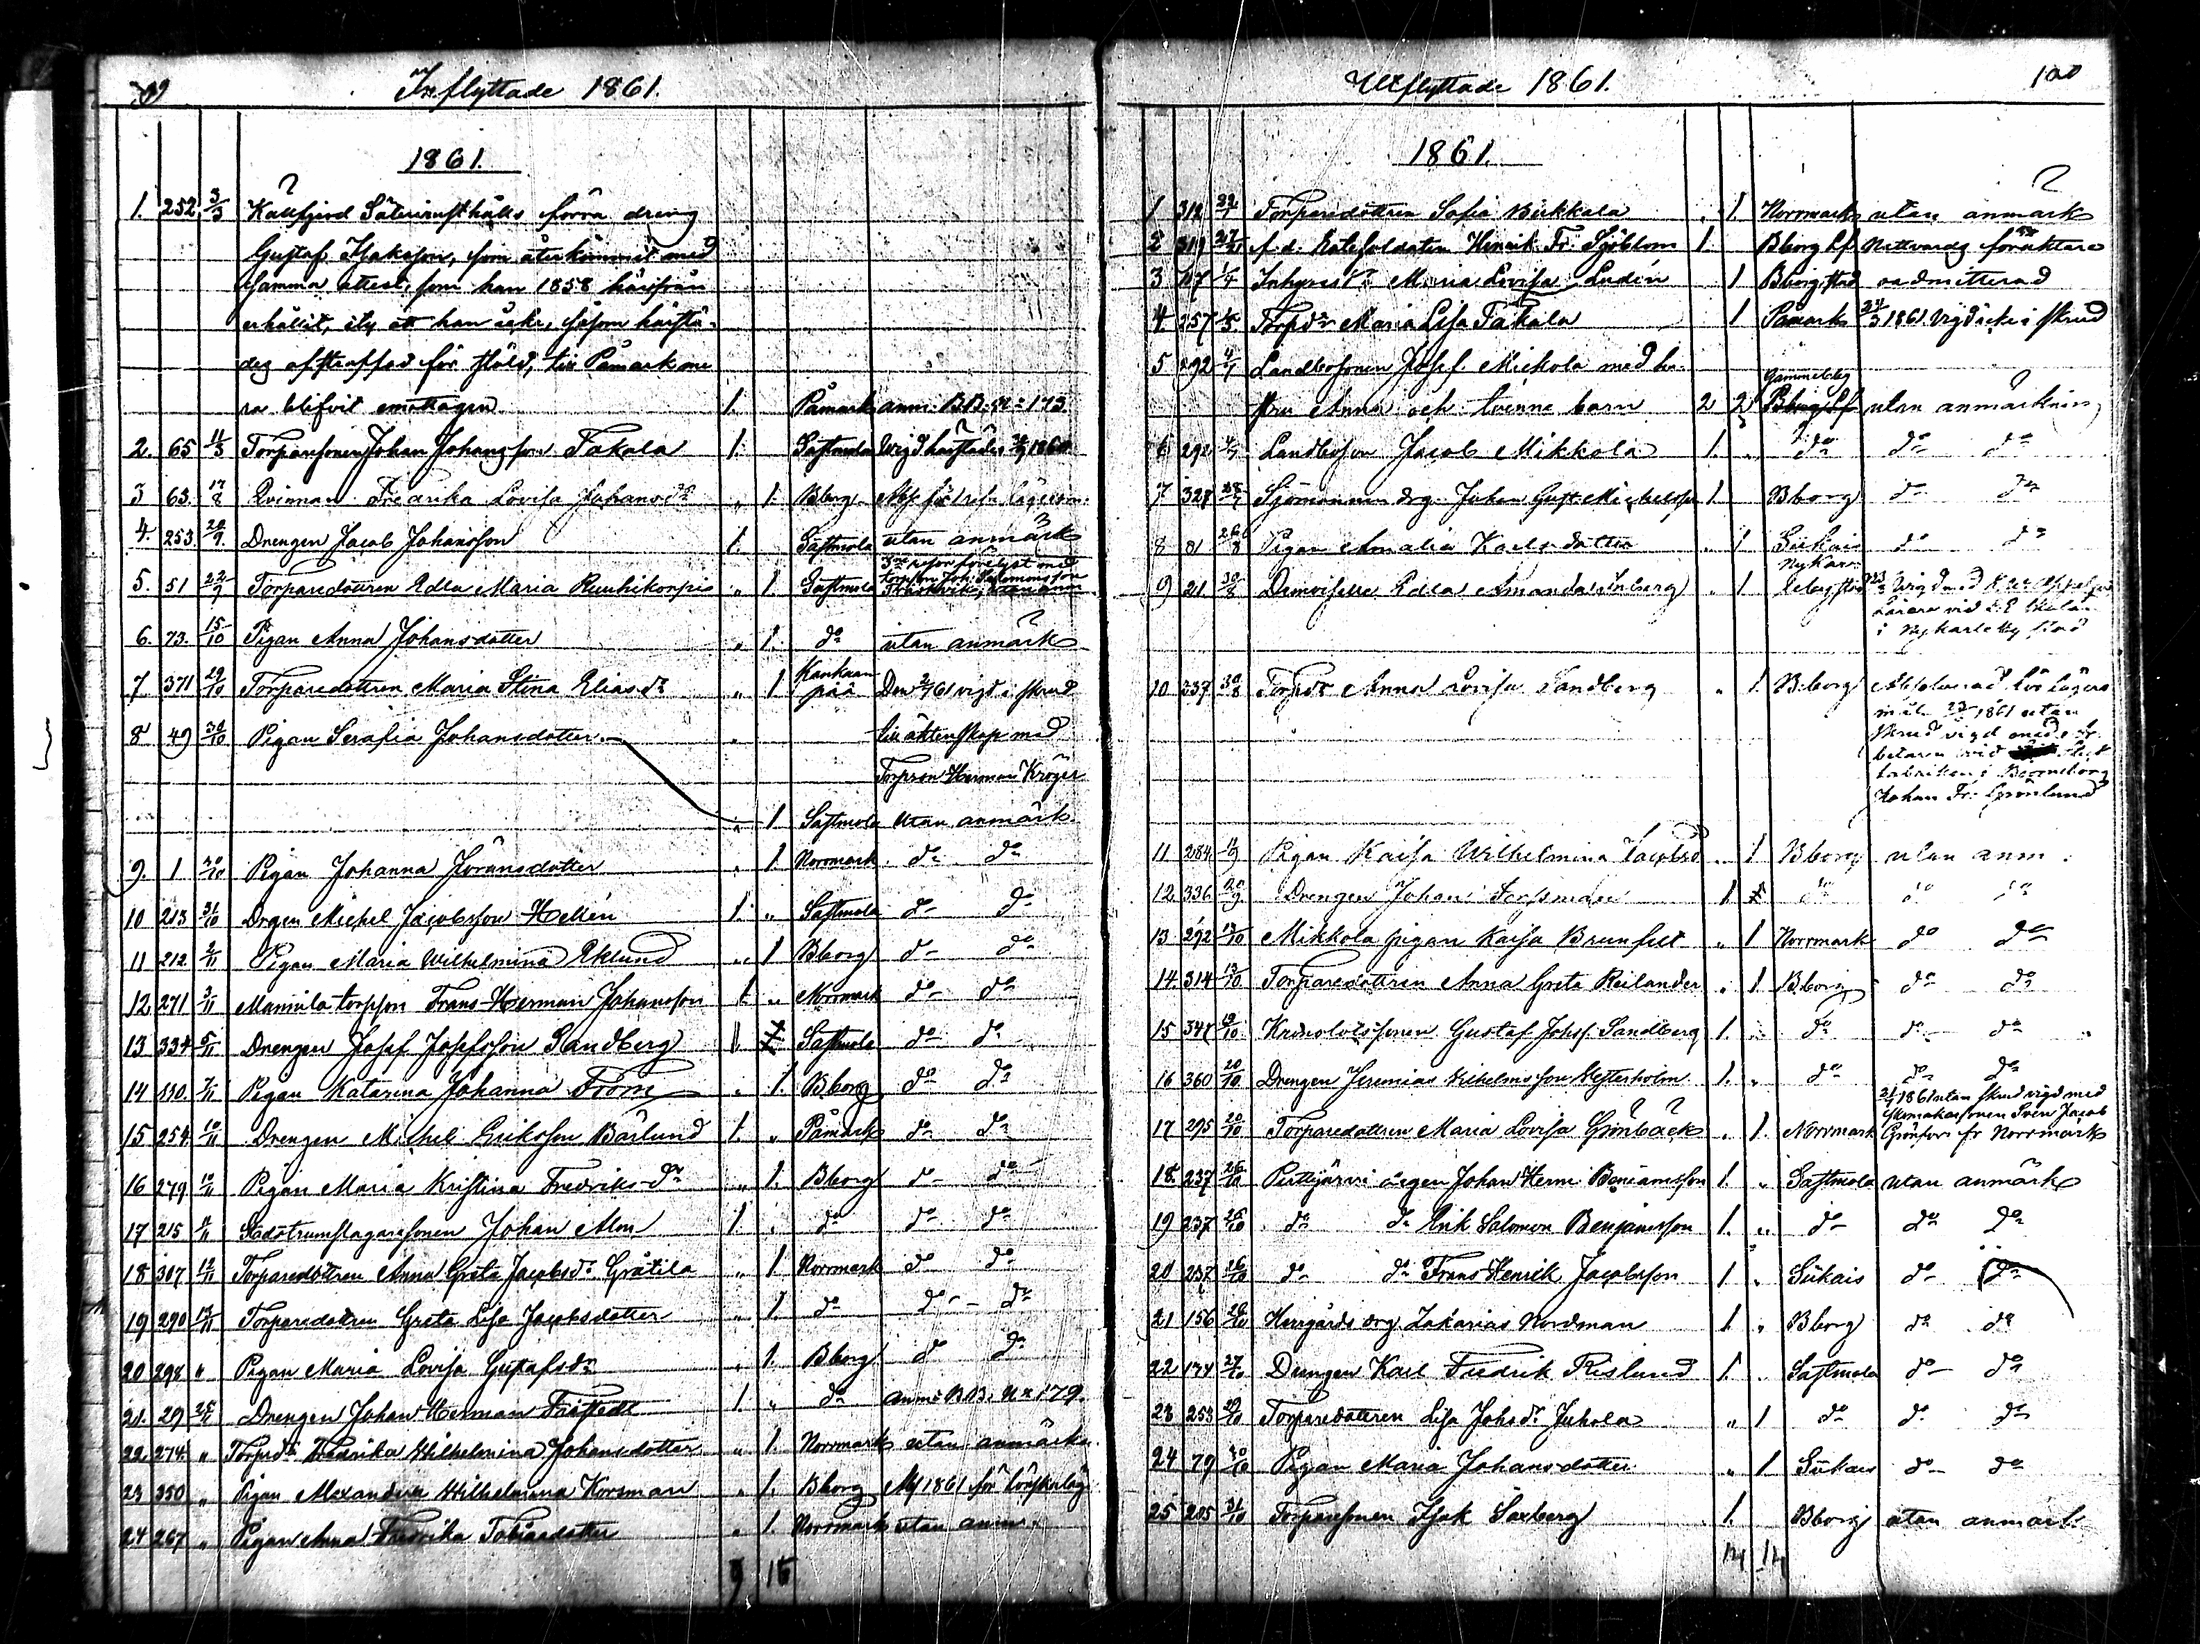 99 Inflyttade 1861.
1861.
1. 252 3/3 Kållfjerd Säteri förra dreng
Gustaf Isaksson, som återkommit med
samma attest, som han 1858 härifrån
erhållit, ity att han icke, såsom härstä-
des afstraffad för stöld, till Påmark me
ra blifvit emottagen 1. Påmark anm. B.B. N:o 173
2. 65 11/3 Torparesonen Johan Johansson Takala 1. Sastmola
3 63. 17/8 Qvinnan Fredrika Lovisa Johansdr „ 1. Bborg
4. 253. 20/9. Drengen Jacob Johansson 1. Sastmola utan anmärk
5. 51 22/9 Torparedottren Edla Maria Ruuhikorpi „ 1. Sastmola
6. 73. 15/10 Pigan Anna Johansdotter „ 1. do utan anmärk
7 371 29/10 Torparedottren Maria Stina Eliasdr „ 1 Kankaanpää Den 2/7 61 vigd i skrud
8 49 30/10 Pigan Serafia Johansdotter „ till äktenskap med
Torparen Herman Kröger
„ 1. Sastmola utan anmärk.
9. 1 30/10 Pigan Johanna Göransdotter „ 1. Norrmark do do
10 213 31/10 Drgen Michel Jacobsson Hellén 1. „ Sastmola do do
11 212 2/11 Pigan Maria Wilhelmina Eklund „ 1 Bborg do do
12 271 3/11 Mamila torpson Frans Herman Johansson 1. „ Norrmark do do
13 334 5/11 Drengen Josef Josefsson Sandberg 1 Sastmola do do
14 7/11 Pigan Katarina Johanna Fröm „ 1. Bborg do do
15 254 10/11 Drengen Michel Eriksson Bärlund 1. „ Påmark do do
16 279 10/11 Pigan Maria Kristina Fredriksdr „ 1. Bborg do do
17 215 11/11 Stadstrumslagaresonen Johan Alm 1. „ do do do
18 307 12/11 Torparedottren Anna Greta Jacobsdr Gråtila „ 1 Norrmark do do
19 290 13/11 Torparedottren Greta Lisa Jacobsdotter „ 1. do do do
20 298 „ Pigan Maria Lovisa Gustafsdr „ 1. Bborg do do
21. 29 25/11 Drengen Johan Herman Fristedt 1. „ do anm: B.B. N:o 179.
22. 274. „ Torpdr Fredrika Wilhelmina Johansdotter „ 1. Norrmark utan anmärkn.
23 350 „ Pigan Alexandra Wilhelmina Korsman „ 1. Bborg Abs 1861 för lönskaläg
24 267 „ Pigan Anna Fredrika Tobiasdotter „ 1. Norrmark utan anm.
9 15
Utflyttade 1861. 100
1861.
1 312 Torparedottren Sofia Birkkala „ 1 Norrmark utan anmärk
2 319 f.d. Rotesoldaten Henrik Fr. Sjöblom 1. Bborg Lf Nattvards föraktare
3 1/4 Inhyses Maria Lovisa Ludén 1 Bborg stad oadmitterad
4 257 Torpdr Maria Lisa Takala 1 Påmark 24/3 1861 vigd icke i skrud
5 292 4/7 Landbosonen Josef Mickola med hu-
stru Anna och tvenne barn 2 2 Gammelby Bborg Lf utan anmärkning
6 292 4/7 Landboson Jacob Mikkola 1. „ do do do
7 327 28/7 Sjömannen drg. Johan Gust. Michelsson 1. Bborg do do
8 81 26/8 Pigan Amalia Karlsdotter „ 1 Siikais do do
9 21. 30/8 Demoiselle Edla Amanda Inberg „ 1 Nykarleby stad Vigd med
Lärare vid skolan
i Nykarleby stad
10 337 30/8 Torpdr Anna Lovisa Sandberg „ 1. B.borg Absolverad för lägers
mål 1861 utan
skrud vigd med ar-
betaren vid
fabriken i Björneborg
Johan Fr. Grönlund
11 284 11/9 Pigan Kaisa Wilhelmina Jacobsd „ 1 Bborg utan anm.
12 336 20/9 Drengen Johan Forssman 1 do do do
13 292 12/10 Mikkola pigan Kaisa Brunfelt „ 1 Norrmark do do
14. 314 13/10 Torparedottren Anna Greta Reilander „ 1 B.borg do do
15 347 19/10 Kronolotssonen Gustaf Johs. Sandberg 1. do do do
16 360 20/10 Drengen Jeremias Wilhelmsson Westerholm 1. „ do do do
17 295 20/10 Torparedottren Maria Lovisa Grönback „ 1. Norrmark 1861 utan skrud vigd med
skomakaresonen Sven Jacob
Grönfors fr Norrmark
18. 237 26/10 Purttjärvi drgen Johan Herm. Beniamsson 1. „ Sastmola utan anmärk
19 237 26/10 do do Erik Salomon Benjamsson 1. „ do do do
20 237 26/10 do do Frans Henrik Jacobsson 1 „ Siikais do do
21 156 26/10 Herrgårds drg. Zakarias Nordman 1 „ Bborg do do
22 174 27/10 Drengen Karl Fredrik Rislund 1. „ Sastmola do do
23 253 29/10 Torparedottren Lisa Johsdr Juhola „ 1 do do do
24 79 30/10 Pigan Maria Johansdotter „ 1 Siikais do do
25 205 31/10 Torparesonen Isak Saxberg 1. Bborg utan anmärk.
14 14